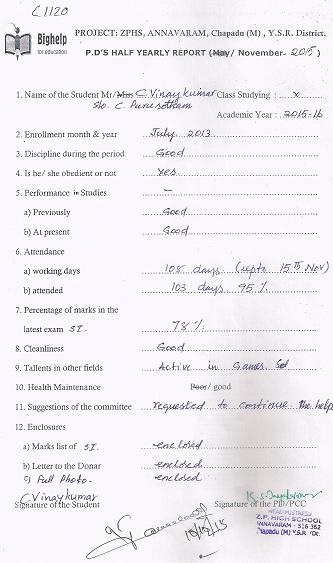 C1120
Bighelp
for education
PROJECT: ZPHS, ANNAVARAM, Chapadu (M) , Y.S.R. District.
P.D'S HALF YEARLY REPORT (May/ November- 2015 )
1. Name of the Student Mr/Miss C. Vinay kumar Class Studying : X
S/o. C. Purusotham
Academic Year : 2015-16
2. Enrollment month & year July 2013
3. Discipline during the period Good
4. Is he/ she obedient or not yes
5. Performance in Studies –
a) Previously Good
b) At present Good
6. Attendance
a) working days 108 days (upto 15th Nov)
b) attended 103 days 95 %
7. Percentage of marks in the
latest exam SI. 78 %
8. Cleanliness Good
9. Tallents in other fields Active in Games
10. Health Maintenance Poor/ good
11. Suggestions of the committee requested to continue the help
12. Enclosures
a) Marks list of SI. enclosed
b) Letter to the Donar enclosed
c) Full Photo. enclosed
C. Vinay kumar
Signature of the Student Signature of the PD/PCC
HEADMISTRESS
Z.P. HIGH SCHOOL
ANNAVARAM - 516 362
Chapadu (M) Y.S.R. Dt.